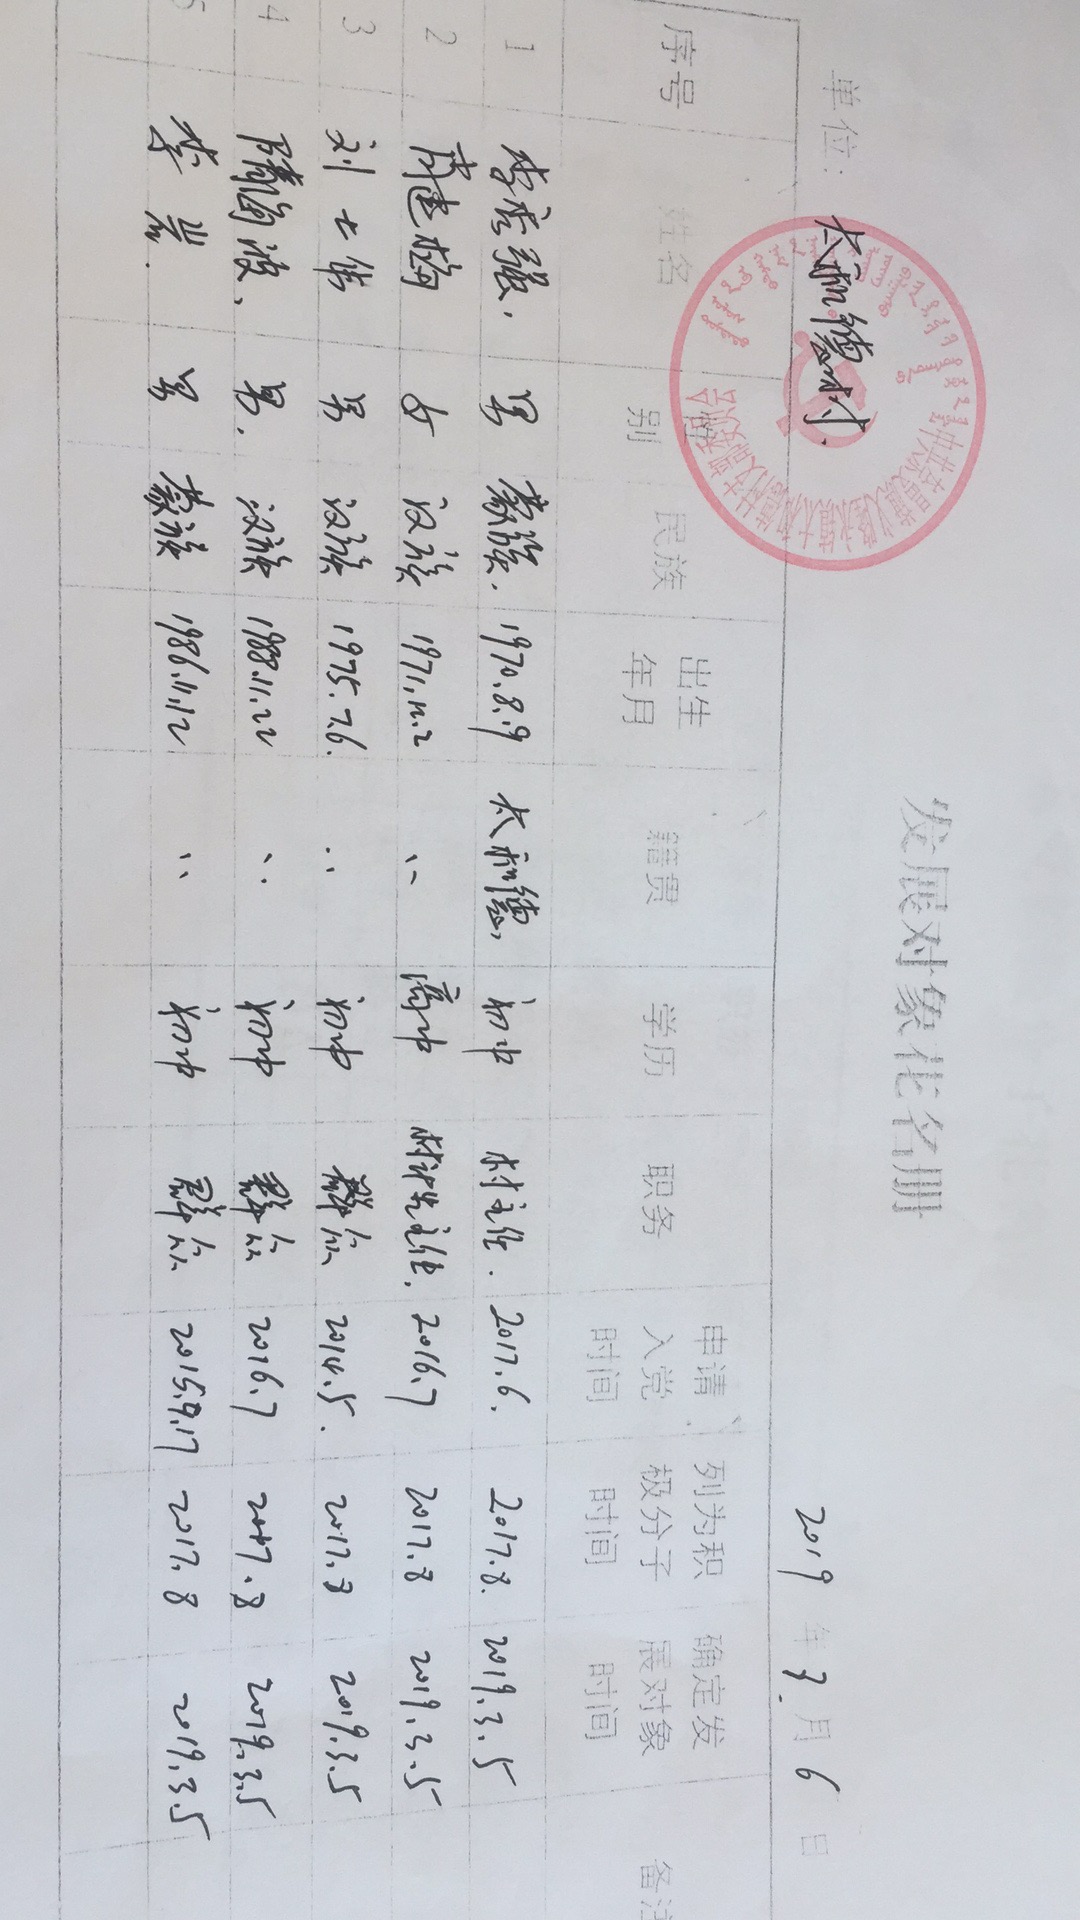 发展对象花名册
单位: 太和德村. 2019年3月6日
序号 姓名 性别 民族 出生年月 籍贯 学历 职务 申请入党时间 列为积极分子时间 确定发展对象时间 备注
1 李秀强. 男 蒙族. 1970.8.9 太和德, 初中 村主任. 2017.6. 2017.8. 2019.3.5
2 建梅 女 汉族 1971.12.2 〃 高中 主任. 2016.7 2017.8 2019.3.5
3 刘七 男 汉族 1975.7.6. 〃 初中 群众 2014.5. 2017.8 2019.3.5
4 海波、 男. 汉族 1988.11.22 〃 初中 群众 2016.7 2017.8 2019.3.5
5 李 男 蒙族 1986.11.12 〃 初中 群众 2015.9.17 2017.8 2019.3.5